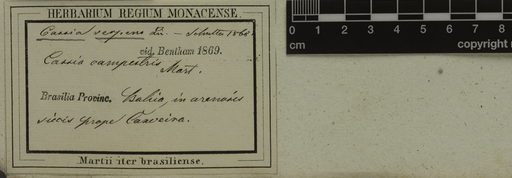 HERBARIUM REGIUM MONACENSE.
Cassia repens – Schultes 1868
vid. Bentham 1869.
Cassia campestris Mart.
Brasilia Provinc. Bahia, in arenosis
siccis prope
Martii iter brasiliense.
0 1 2 3 4 5 6 7 8
cm copyright